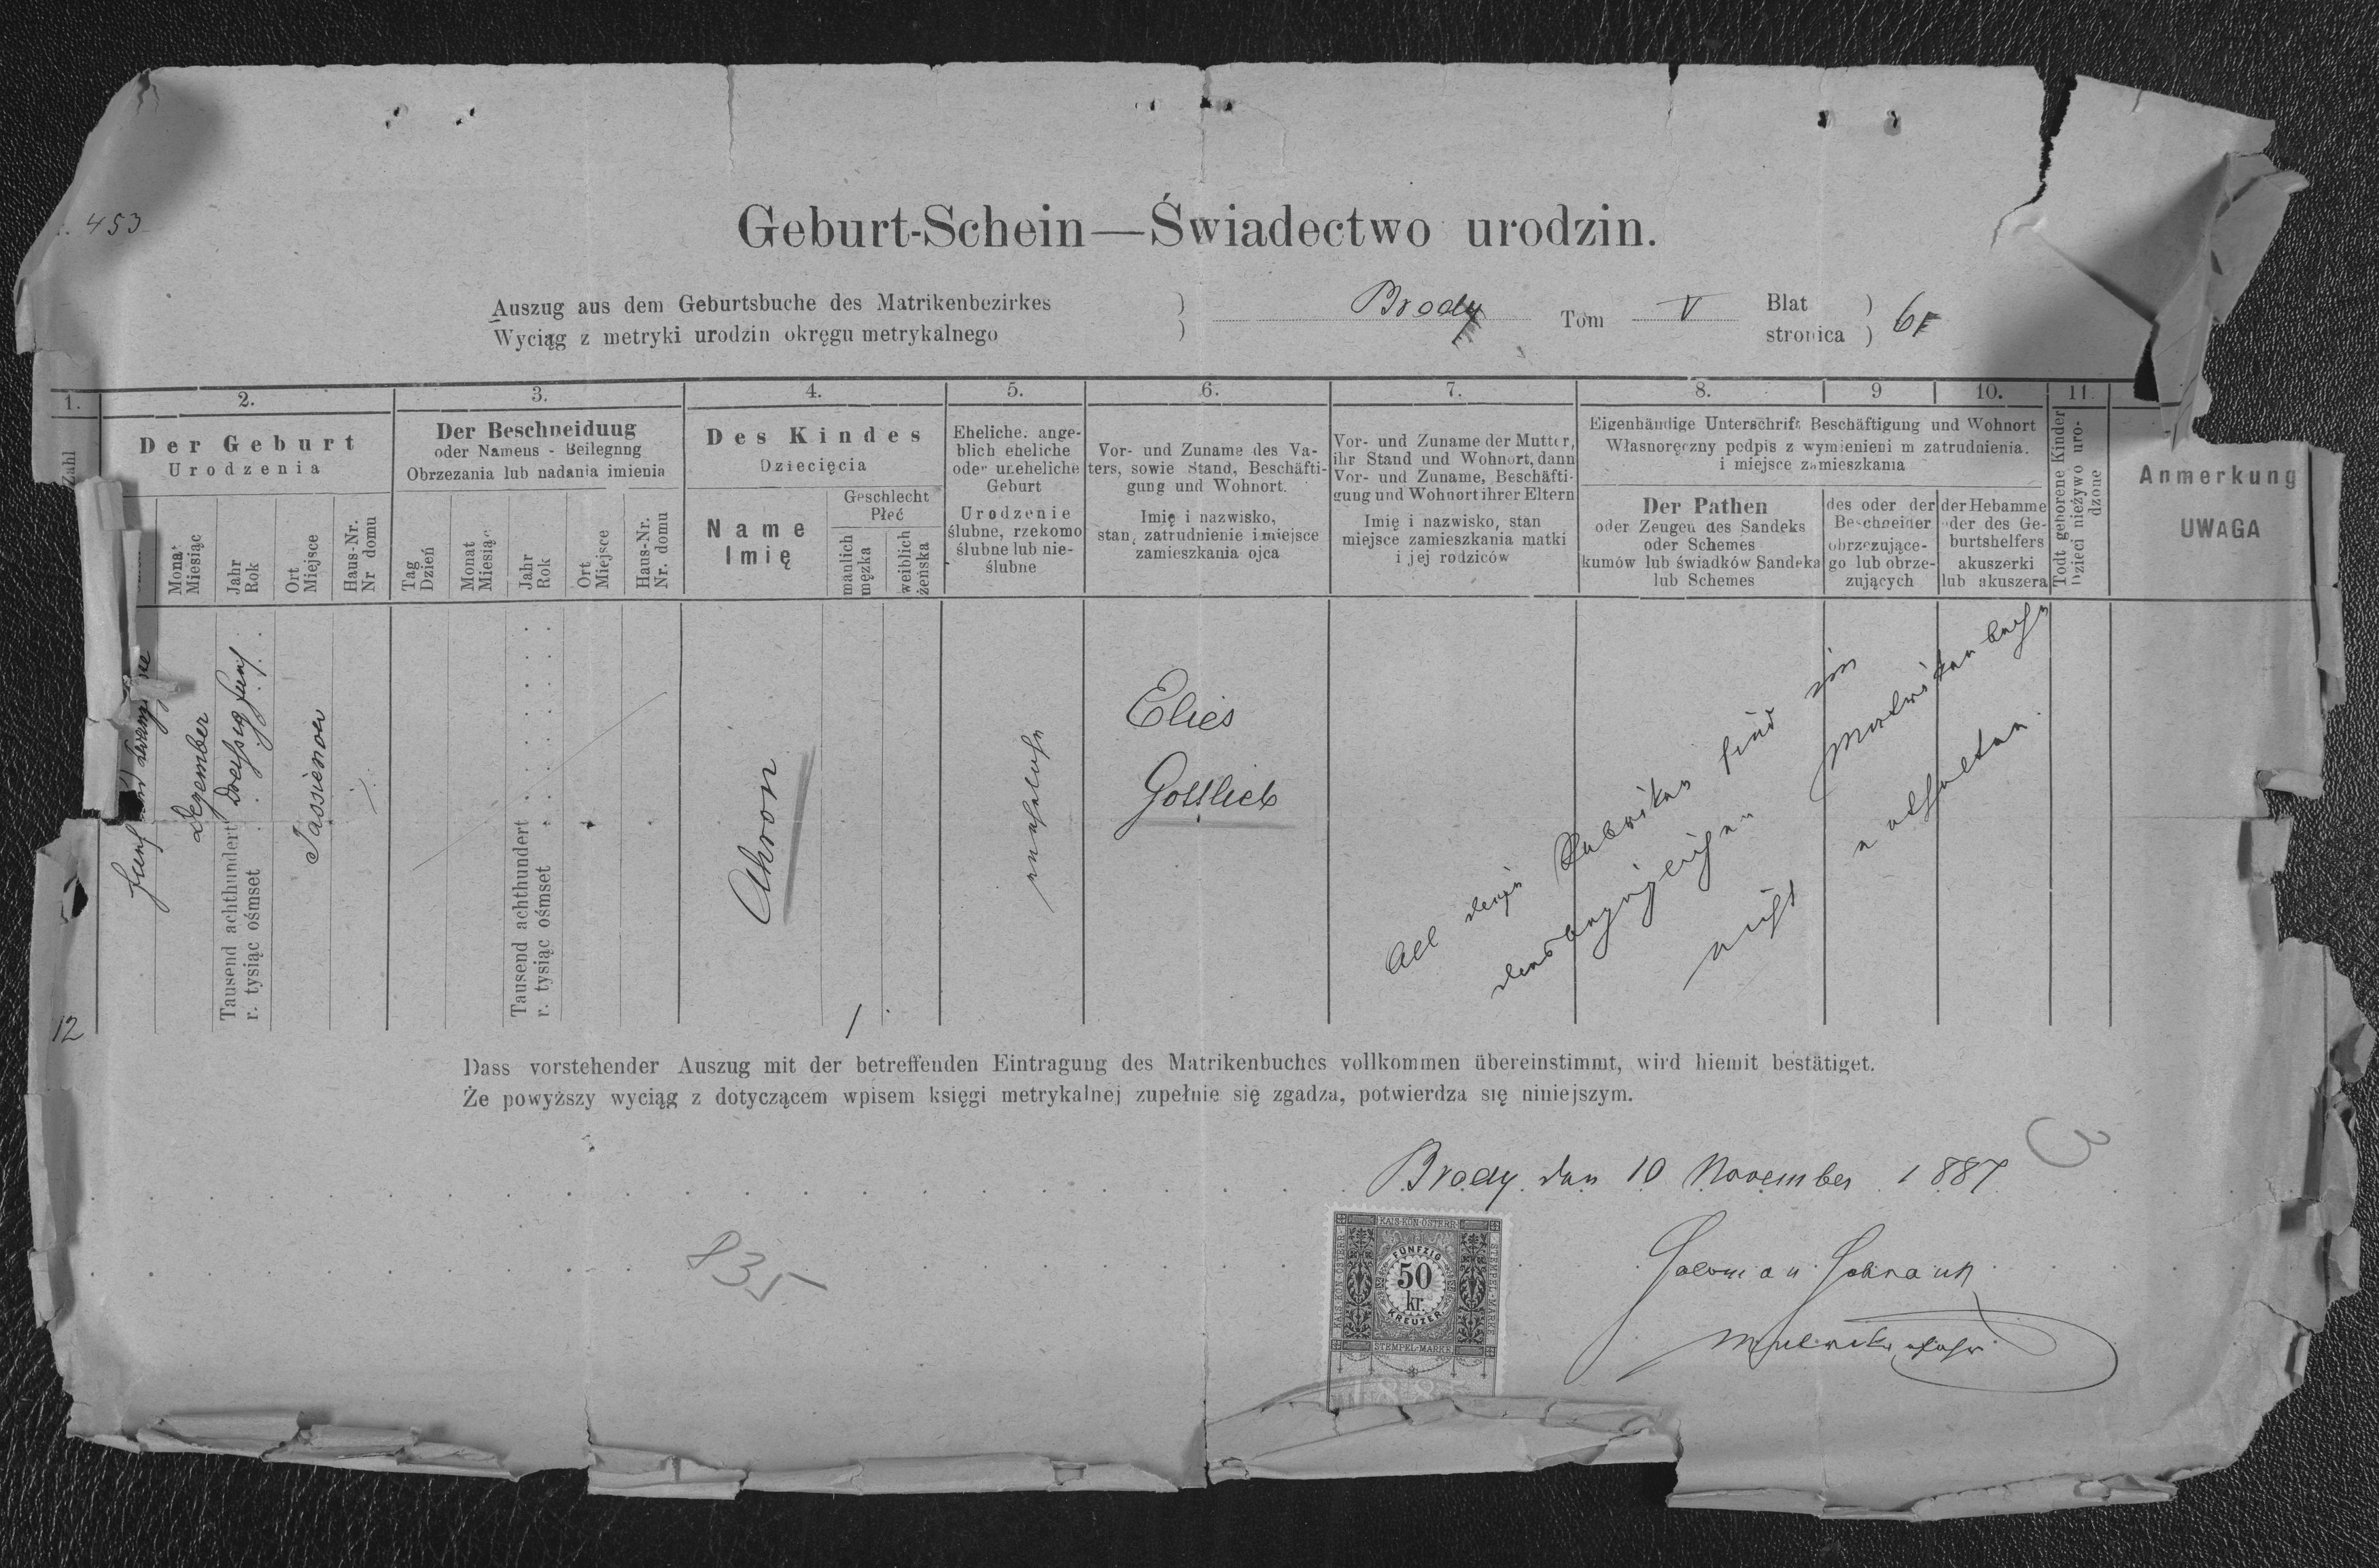 453
Geburt-Schein—Świadectwo urodzin.
Auszug aus dem Geburtsbuche des Matrikenbezirkes )
Wyciąg z metryki urodzin okręgu metrykalnego )
Brody Tom V
Blat )
stronica )
1.
Zahl
12
2.
Der Geburt
Urodzenia
Monat
Miesiąc
Jahr
Rok
Ort
Miejsce
Haus-Nr.
Nr domu
Dezember
Tausend achthundert Dreyssig fünf
r. tysiąc ośmset
Jassienow
3.
Der Beschneidung
oder Namens - Beilegnng
Obrzezania lub nadania imienia
Tag
Dzień
Monat
Miesiąc
Jahr
Rok
Ort
Miejsce
Haus-Nr.
Nr. domu
Tausend achthundert
r. tysiąc ośmset
4.
Des Kindes
Dziecięcia
Name
Imię
Geschlecht
Płeć
mänlich
męzka
weiblich
żeńska
Ahron
1
5.
Eheliche. ange-
blich eheliche
oder uneheliche
Geburt
Urodzenie
ślubne, rzekomo
ślubne lub nie-
ślubne
6.
Vor- und Zuname des Va-
ters, sowie Stand, Beschäfti-
gung und Wohnort.
Imię i nazwisko,
stan, zatrudnienie i miejsce
zamieszkania ojca
Elies
Gottlieb
7.
Vor- und Zuname der Mutter,
ihr Stand und Wohnort, dann
Vor- und Zuname, Beschäfti-
gung und Wohnort ihrer Eltern
Imię i nazwisko, stan
miejsce zamieszkania matki
i jej rodziców
8.
9
10.
Eigenhändige Unterschrift Beschäftigung und Wohnort
Własnoręczny podpis z wymienieni m zatrudnienia.
i miejsce zamieszkania
Der Pathen
oder Zeugen des Sandeks
oder Schemes
kumów lub świadków Sandeka
lub Schemes
des oder der
Beschneider
obrzezujące-
go lub obrze-
zujących
der Hebamme
oder des Ge-
burtshelfers
akuszerki
lub akuszera
Rubriken sind im
Matrikenbuche
nicht
enthalten
11.
Todt geborene Kinder
Dzieci nieżywo uro-
dzone
Anmerkung
UWAGA
Dass vorstehender Auszug mit der betreffenden Eintragung des Matrikenbuches vollkommen übereinstimmt, wird hiemit bestätiget.
Że powyższy wyciąg z dotyczącem wpisem księgi metrykalnej zupełnie się zgadza, potwierdza się niniejszym.
3
Brody den 10 November 1887
835
KAIS·KÖN·ÖSTERR·
KAIS·KÖN·ÖSTERR·
STEMPEL-MARKE
FÜNFZIG
50
kr.
KREUZER
STEMPEL-MARKE
Matrikenführer